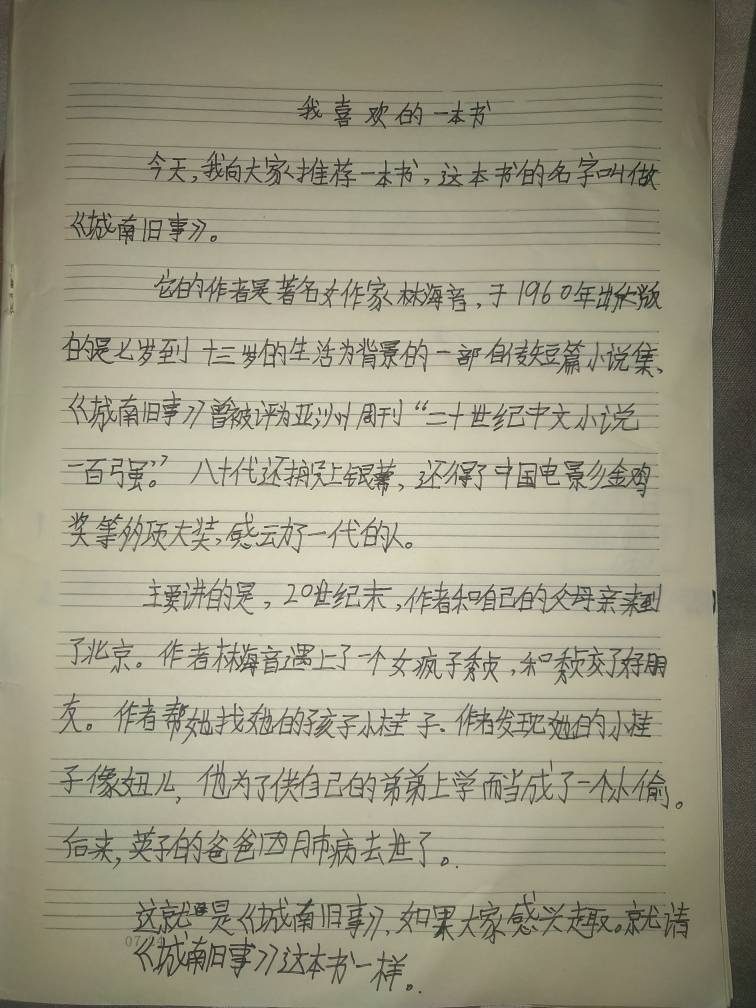 我喜欢的一本书
今天,我向大家推荐一本书,这本书的名字叫做
《城南旧事》。
它的作者是著名女作家林海音,于1960年出版
的是七岁到十三岁的生活为背景的一部自传短篇小说集、
《城南旧事》曾被评为亚洲周刊“二十世纪中文小说
一百强”。八十代还搬上银幕,还得了中国电影金鸡
奖等多项大奖,感动了一代的人。
主要讲的是,20世纪末,作者和自己的父母亲来到
了北京。作者林海音遇上了一个女疯子秀贞,和秀贞交了好朋
友。作者帮她找她的孩子小桂子、作者发现她的小桂
子像妞儿,他为了供自己的弟弟上学而当成了一个小偷。
后来,英子的爸爸因肺病去世了。
这就是《城南旧事》,如果大家感兴趣。就请
《城南旧事》这本书一样。
07